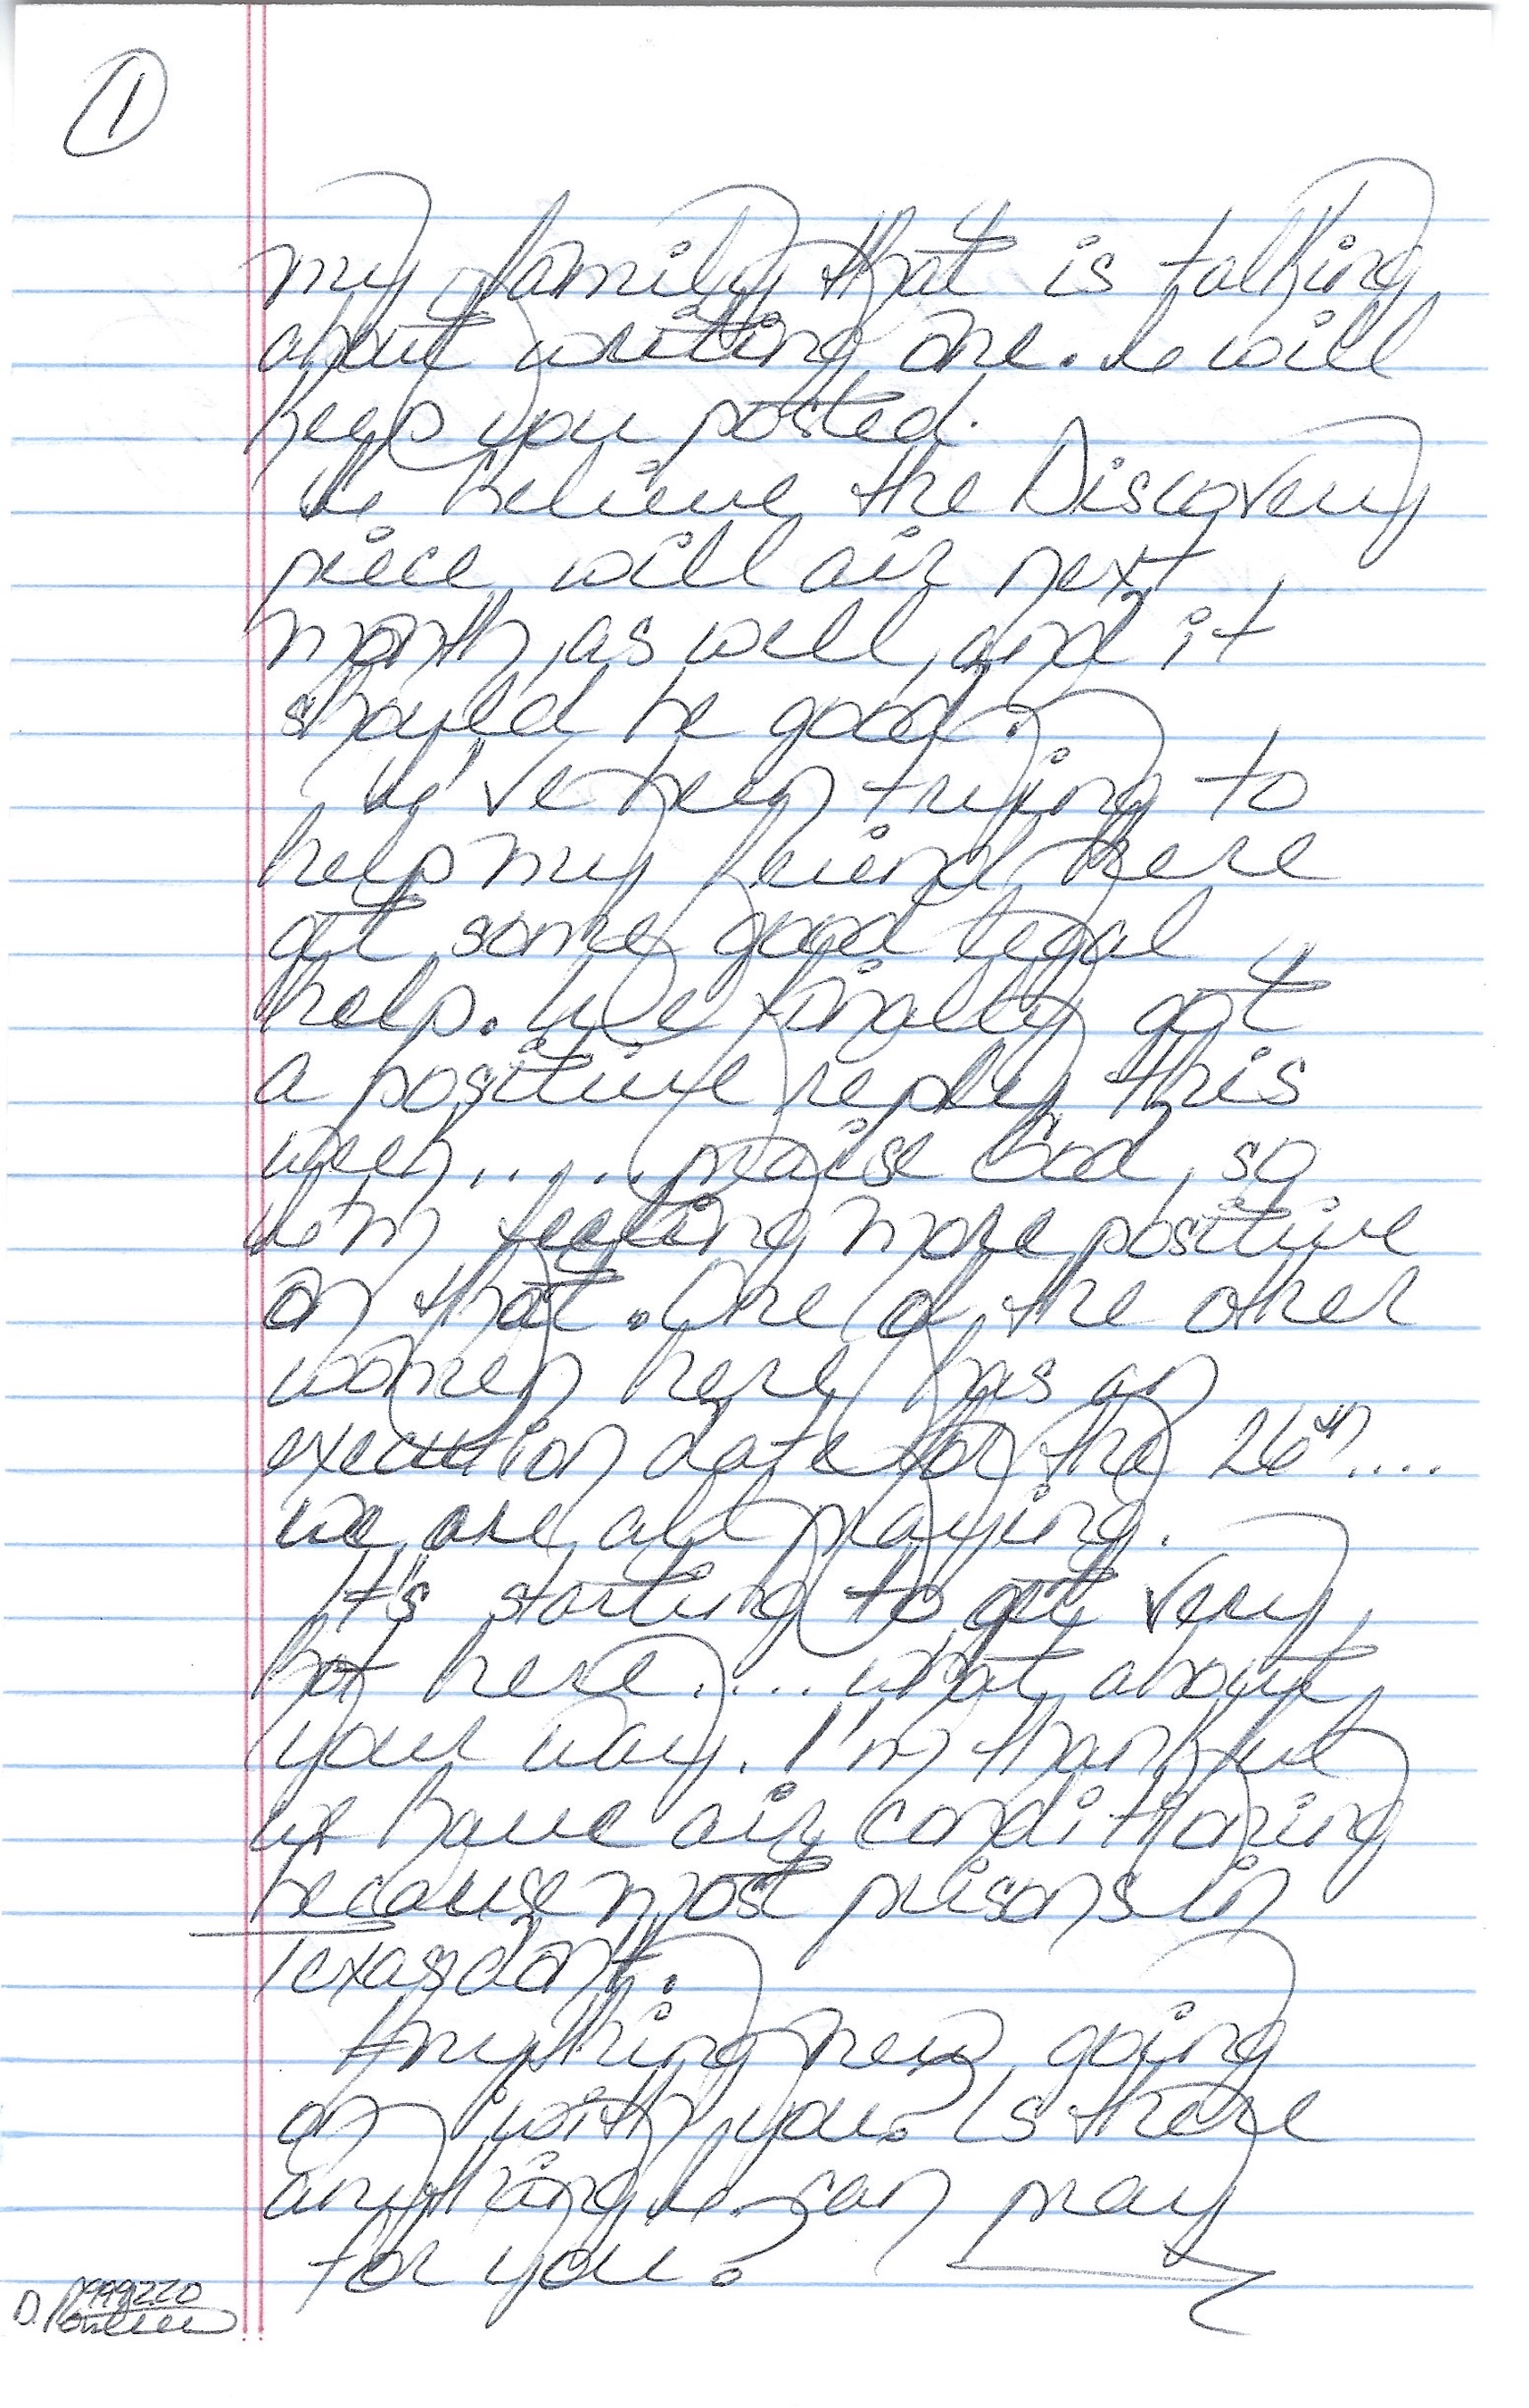 1
my family that is talking
about writing one. I will
keep you posted.
I believe the Discovery
piece will air next
month, as well, and it
should be good.
I've been trying to
help my friend here
get some good legal
help. We finally got
a positive reply this
week..... praise God, so
I'm feeling more positive
on that. One of the other
women here has an
execution date for the 26th....
we are all praying.
It's starting to get very
hot here.... what about
your way. I'm thankful
we have air conditioning
because most prisons in
Texas don't.
Anything new going
on with you? Is there
anything I can pray
for you?
999220
D.